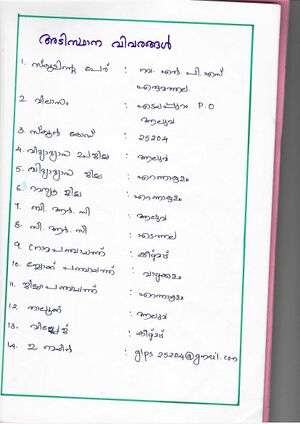 അടിസ്ഥാന വിവരങ്ങൾ
1. സ്കൂളിന്റെ പേര് : ഗവ. എൽ. പി. എസ്
2. വിലാസം : എടയപ്പുറം P.O
ആലുവ
3. സ്കൂൾ കോഡ് : 25204
4. വിദ്യാഭ്യാസ ഉപജില്ല : ആലുവ
5. വിദ്യാഭ്യാസ ജില്ല : എറണാകുളം
6. റവന്യൂ ജില്ല : എറണാകുളം
7. ബി. ആർ. സി : ആലുവ
8. സി. ആർ. സി :
9. ഗ്രാമപഞ്ചായത്ത് : കീഴ്മാട്
10. ബ്ലോക്ക് പഞ്ചായത്ത് : വാഴക്കുളം
11. ജില്ലാപഞ്ചായത്ത് : എറണാകുളം
12. താലൂക്ക് : ആലുവ
13. വില്ലേജ് : കീഴ്മാട്
14. ഇ മെയിൽ : glps25204@gmail.com